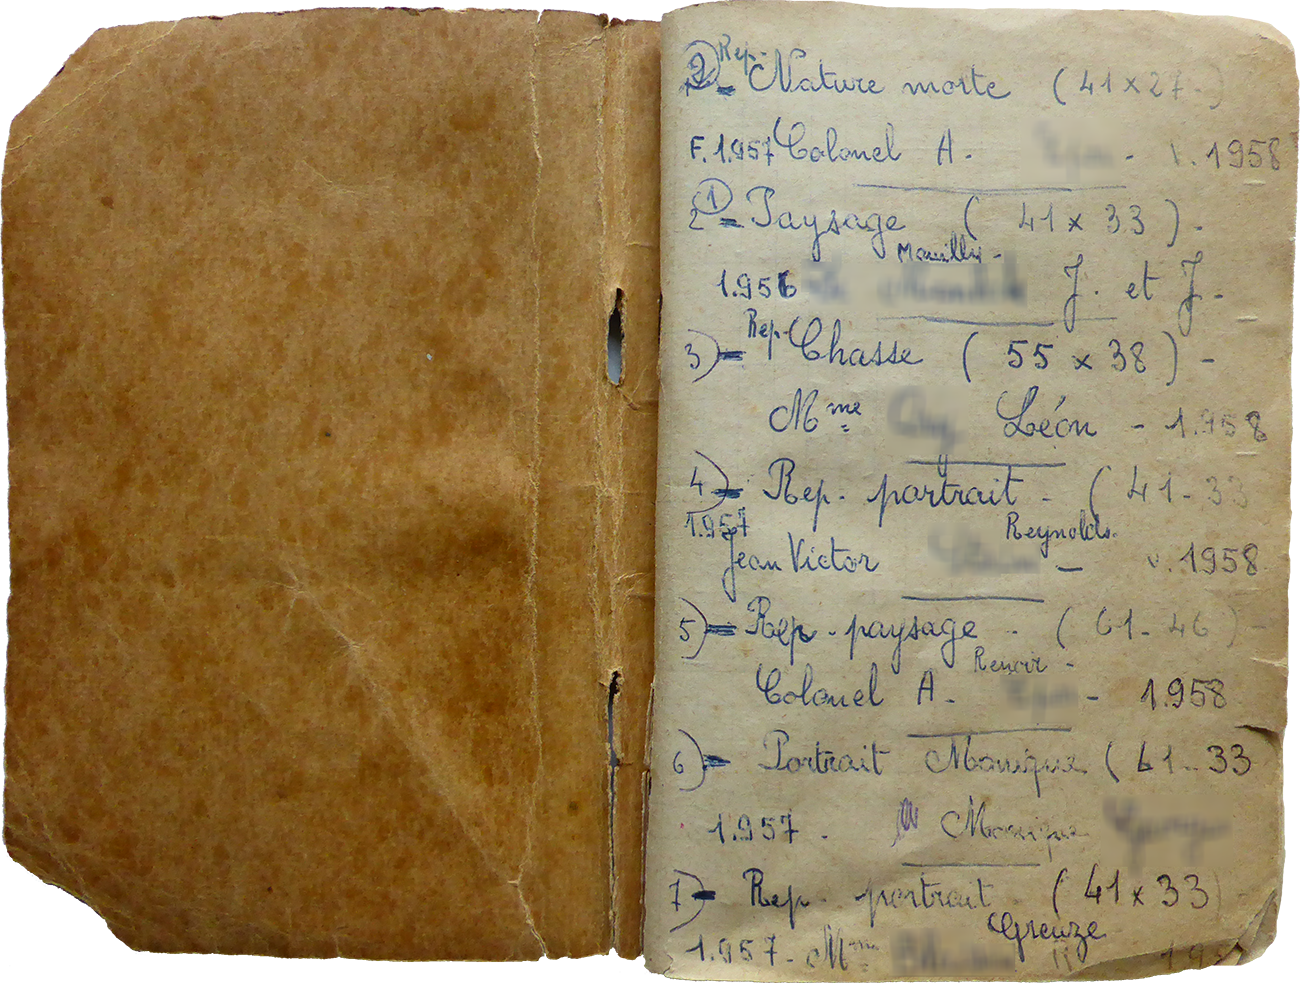 2 Rep. Nature morte (41 x 27.)
F. 1.957 Colonel A. - v. 1958
2 1 = Paysage ( 41 x 33 ) -
1.956 J. et J -
3) = Rep. Chasse ( 55 x 38 ) -
Mme Léon - 1.958
4) = Rep. portrait - ( 41 - 33
1.957 Reynolds.
Jean Victor - v. 1958
5) = Rep. paysage - ( 61 - 46 ) -
Renoir -
Colonel A. - 1.958
6) = Portrait Monique ( 41 - 33
1.957 . Monique
7) = Rep. portrait ( 41 x 33 ) -
Greuze
1.957 - Mme